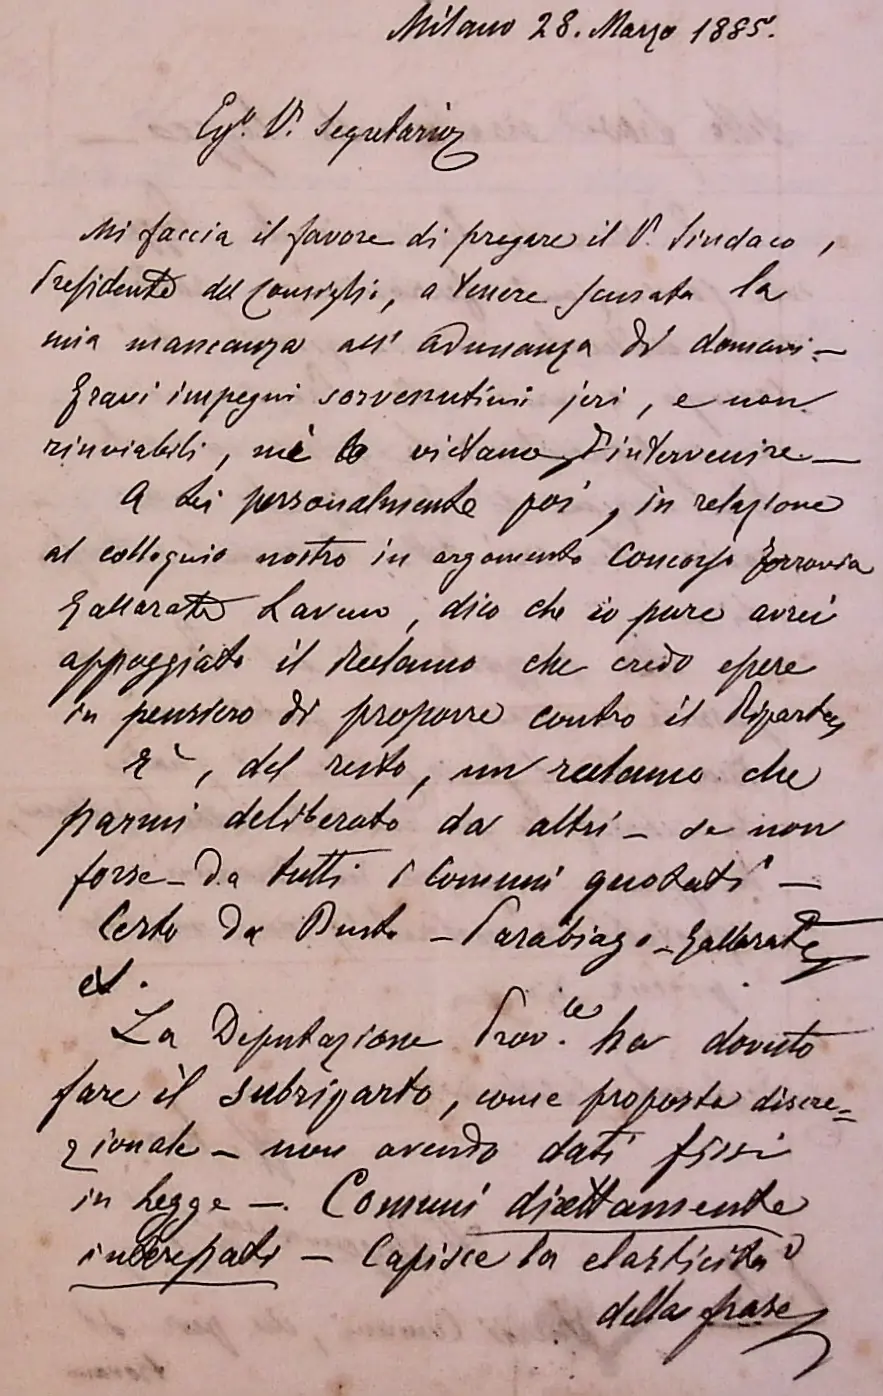 Milano 28. Marzo 1885.
Eg.º V. Segretario
Mi faccia il favore di pregare il V. Sindaco,
Presidente del Consiglio, a tenere scusata la
mia mancanza all' adunanza di domani.—
Gravi impegni sorvenutimi jeri, e non
rinviabili, me lo vietano d'intervenire—
A Lei personalmente poi, in relazione
al colloquio nostro in argomento Concorso ferrovia
Gallarate Laveno, dico che io pure avrei
appoggiato il reclamo che credo essere
in pensiero di proporre contro il Riparto,
È, del resto, un reclamo che
parmi deliberato da altri — se non
forse — da tutti i Comuni quotati —
Certo da Busto — Parabiago — Gallarate
et.
La Deputazione Prov.le ha dovuto
fare il subriparto, come proposta discre=
zionale — non avendo dati fissi
in legge —. Comuni direttamente
interessati — Capisce la elasticità
della frase